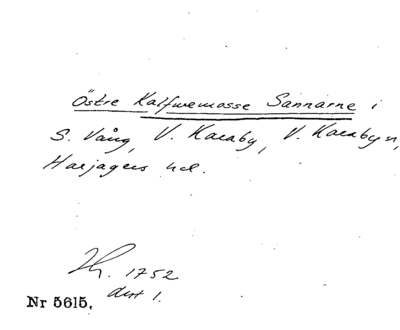 Östre Kalfwemosse Sannarne i
S. Vång, V. Karaby, V. Karabysn,
Harjagers hd.
1752
Nr 5615.